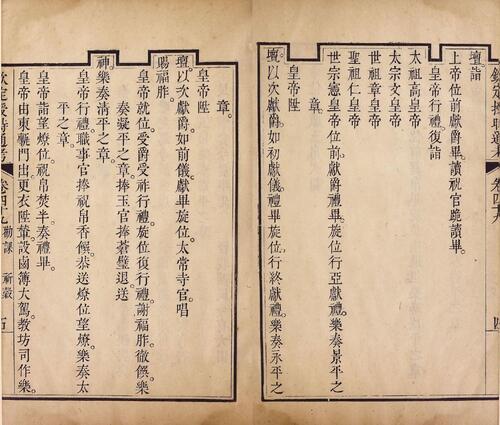 壇詣
上帝位前獻爵畢。讀祝官跪讀畢。
皇帝行禮。復詣
太祖高皇帝
太宗文皇帝
世祖章皇帝
聖祖仁皇帝
世宗憲皇帝位前。獻爵禮畢。旋位行亞獻禮。樂奏景平之
章。
皇帝陞
壇。以次獻爵。如初獻儀。禮畢。旋位。行終獻禮。樂奏永平之
章。
皇帝陞
壇。以次獻爵。如前儀。獻畢。旋位。太常寺官。唱
賜福胙。
皇帝就位。受爵受祚行禮。旋位。復行禮。謝福胙。徹饌。樂
奏凝平之章。捧玉官捧蒼璧退。送
神。樂奏淸平之章。
皇帝行禮。職事官捧祝帛香饌。恭送燎位望燎。樂奏太
平之章。
皇帝詣望燎位。視帛焚半。奏禮畢。
皇帝由東櫺門出。更衣陞輦。設鹵簿大駕。敎坊司作樂。
欽定授時通考 卷四十九 勸課 祈穀